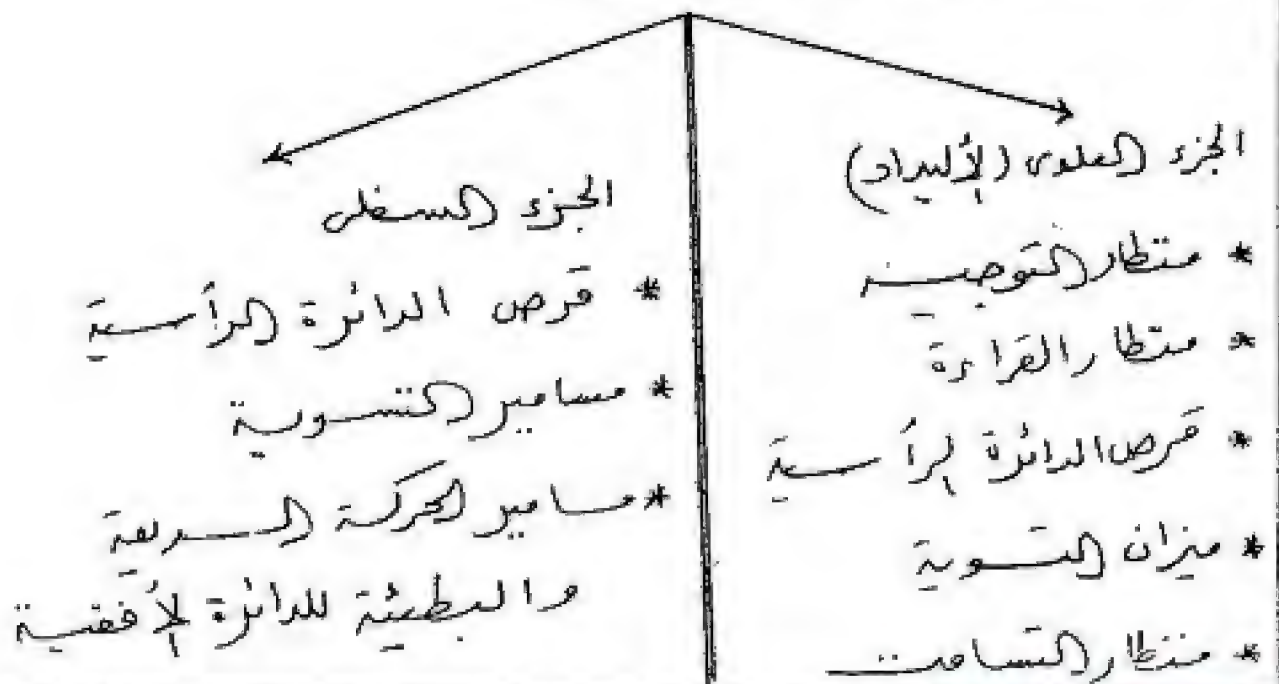 الجزء العلوى (الأليداد)
* منظار التوجيه
* منظار القراءة
* قرص الدائرة الرأسية
* ميزان التسوية
* منظار التسامت
الجزء السفلى
* قرص الدائرة الرأسية
* مسامير التسوية
* مسامير الحركة السريعة
والبطيئة للدائرة الأفقية